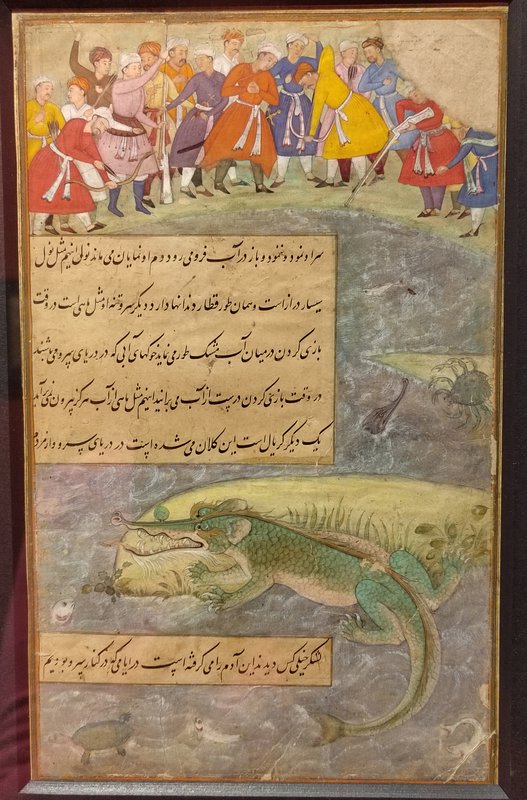 سر او نمود و ننمود و باز در آب فرو می رود و دم او نمایان می ماند نولی اینهم مثل نول
بسیار دراز است و همان طور قطار دندانها دارد دیگر سر و تنه او مثل ماهی است در وقت
بازی کردن در میان آب مشک طور می نماید خوکهای آبی که در دریای سرو می باشند
در وقت بازی کردن درست از آب می برایند اینهم مثل ماهی از آب هرگز بیرون نمی آید
یک دیگر گریال است این کلان می شده است در دریای سرو و از مردم
لشکر خیلی کس دیدند این آدم را می گرفته است در ایامی که در کنار سرو بودیم